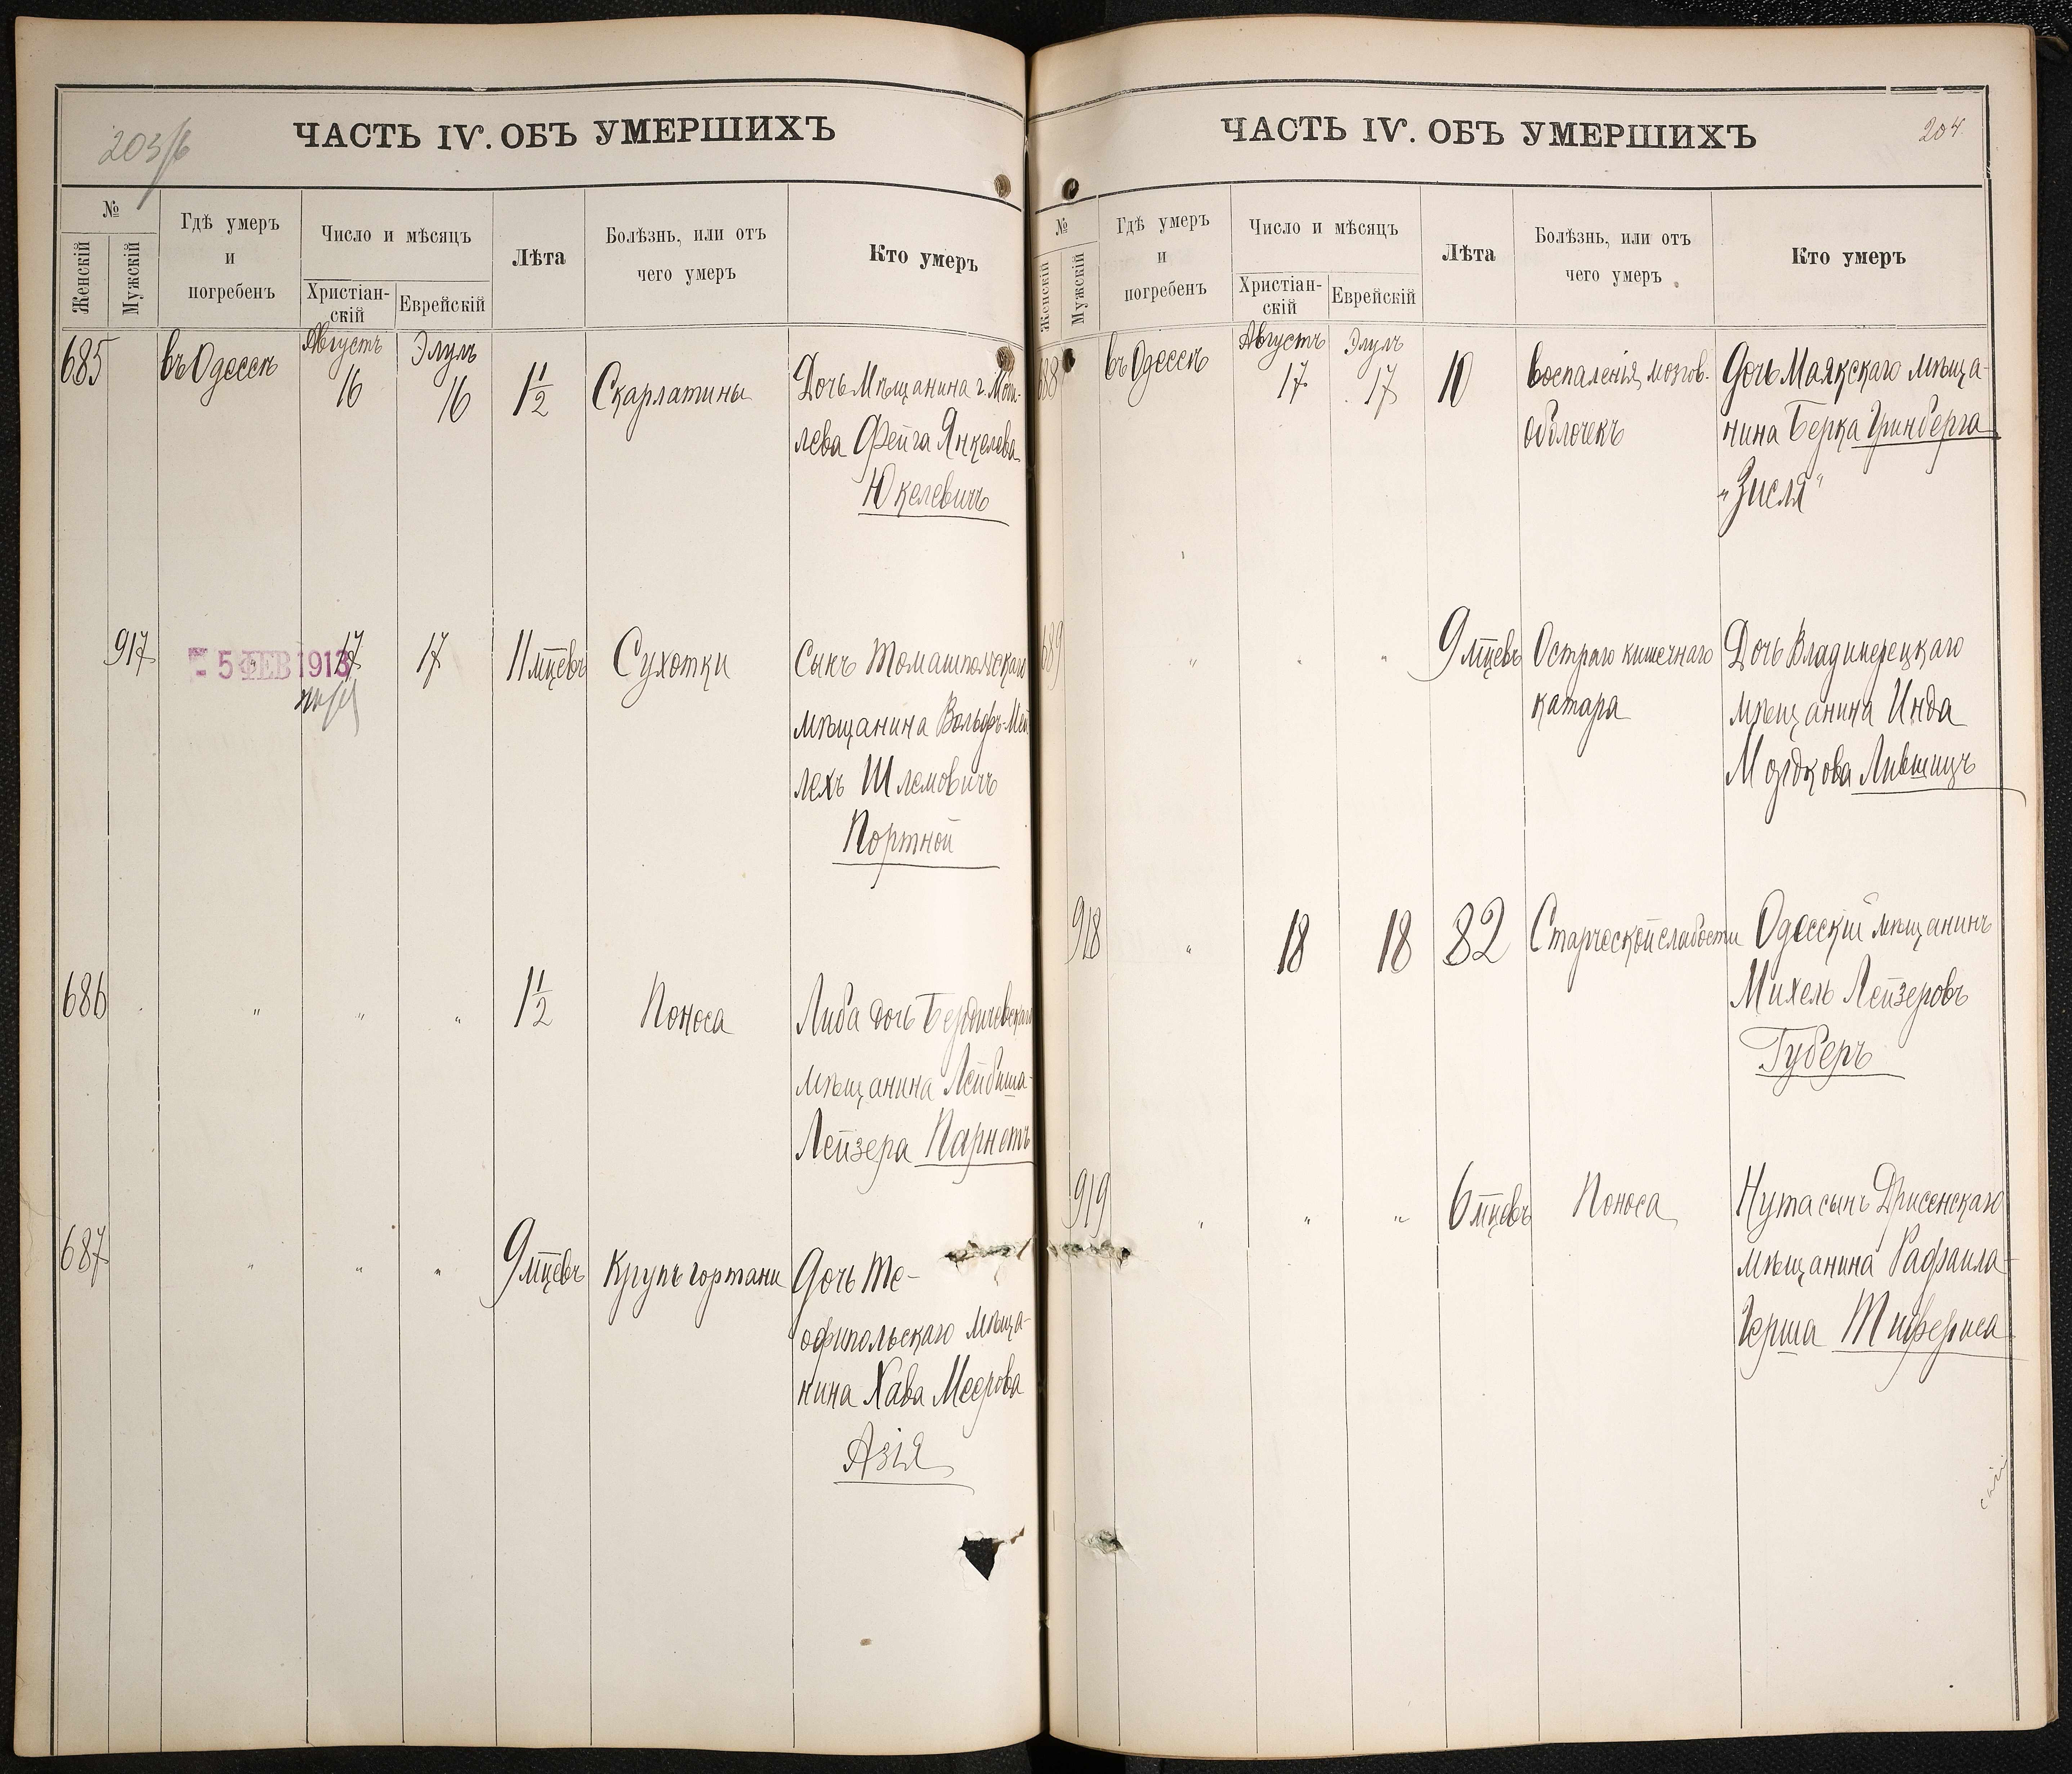 203/б
ЧАСТЬ IV. ОБЪ УМЕРШИХЪ
№
Женскій
Мужскій
Гдѣ умеръ
и
погребенъ
Число и мѣсяцъ
Христіан-
скій
Еврейскій
Лѣта
Болѣзнь, или отъ
чего умеръ
Кто умеръ
685
въ Одессѣ
Августъ
16
Элулъ
16
1 1/2
Скарлатины
Дочь Мѣщанина г. Моги-
лева Фейга Янкелева
Юкелевичъ
917
5 ФЕВ 1913
17
17
11 мцевъ
Сухотки
Сынъ Томашпольскаго
мѣщанина Вольфъ-Мей
лехъ Шлемовичъ
Портной
686
"
"
"
1 1/2
Поноса
Либа дочь Бердичевскаго
мѣщанина Лейбиша-
Лейзера Парнетъ
687
"
"
"
9 мцевъ
Крупъ гортани
Дочь Те-
офипольскаго мѣща-
нина Хава Меерова
Азія
ЧАСТЬ IV. ОБЪ УМЕРШИХЪ
204.
№
Женскій
Мужскій
Гдѣ умеръ
и
погребенъ
Число и мѣсяцъ
Христіан-
скій
Еврейскій
Лѣта
Болѣзнь, или отъ
чего умеръ
Кто умеръ
688
въ Одессѣ
Августъ
17
Элулъ
17
10
Воспаленія мозгов.
оболочекъ
Дочь Маякскаго мѣща-
нина Берка Гринберга
"Зисля"
689
"
"
"
9 мцевъ
Остраго кишечнаго
катара
Дочь Владимерецкаго
мѣщанина Инда
Мордкова Лившицъ
918
"
18
18
82
Старческой слабости
Одесскій мѣщанинъ
Михель Лейзеровъ
Губеръ
919
"
"
"
6 мцевъ
Поноса
Нута сынъ Дрисенскаго
мѣщанина Рафаила-
Герша Тифериса